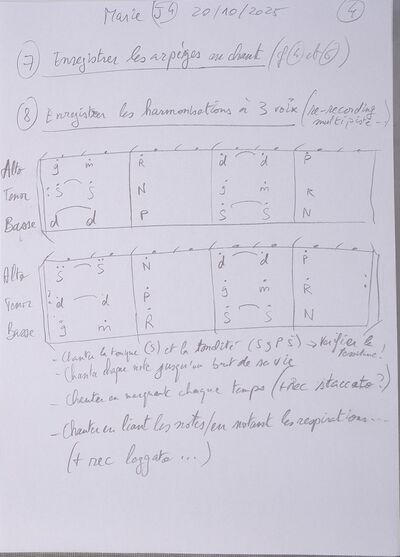 Marie J4 20/10/2025 4
7 Enregistrer les arpèges au chant (f 4 et 6)
8 Enregistrer les harmonisations à 3 voix (re-recording
multipiste...)
Alto g m R d d P
Tenor S S N g m R
Basse d d P S S N
Alto S S N d d P
Tenor d d P g m R
Basse g m R S S N
- Chanter la tonique (S) et la tonalité (S g P S) → Vérifier le
- Chanter chaque note jusqu'au bout de sa vie
- Chanter en marquant chaque temps (+ Rec staccato?)
- Chanter en liant les notes/en notant les respirations...
(+ rec leggato...)